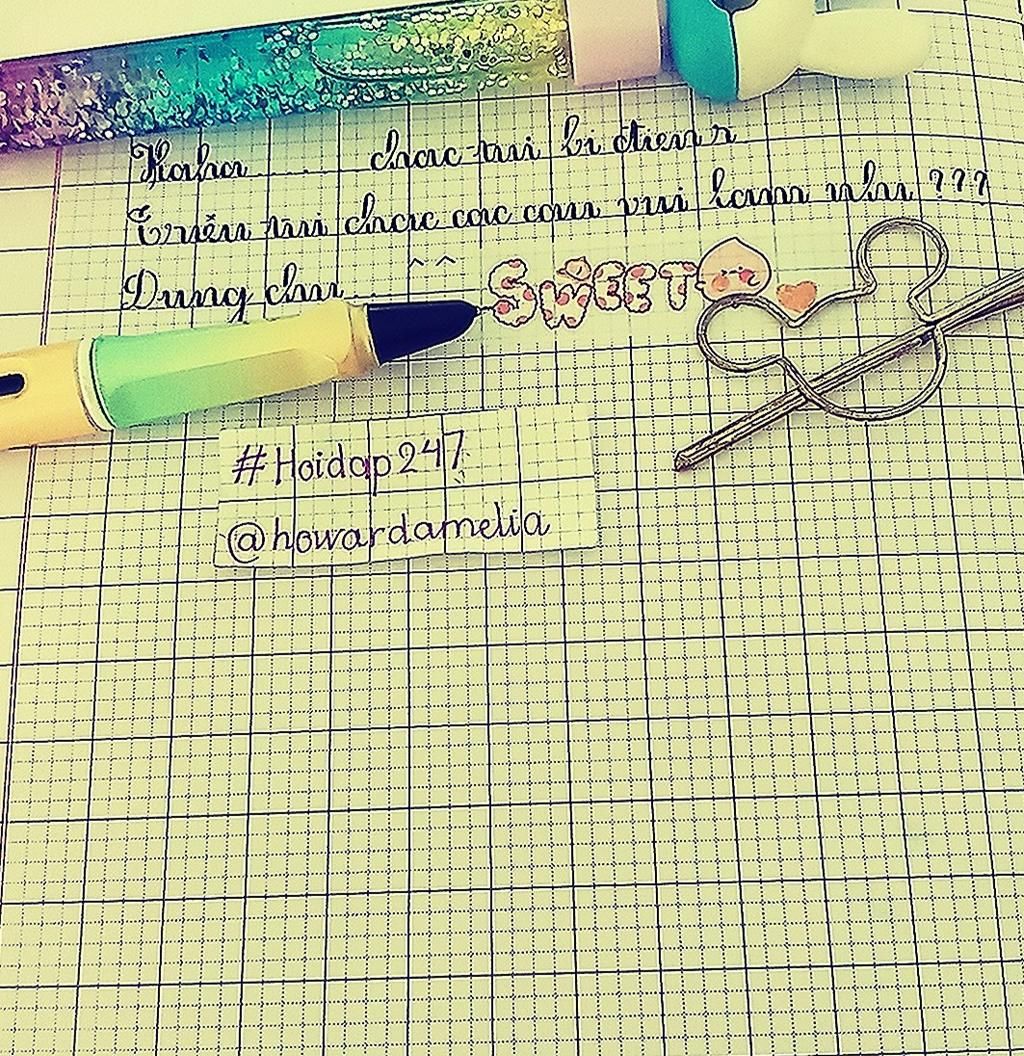 Haha ...... chac tui bi dien r
Thiếu tui chac cac cau vui lam nhu ???
Dung chu ^^
SWEET
#Hoidap247
@howardamelia